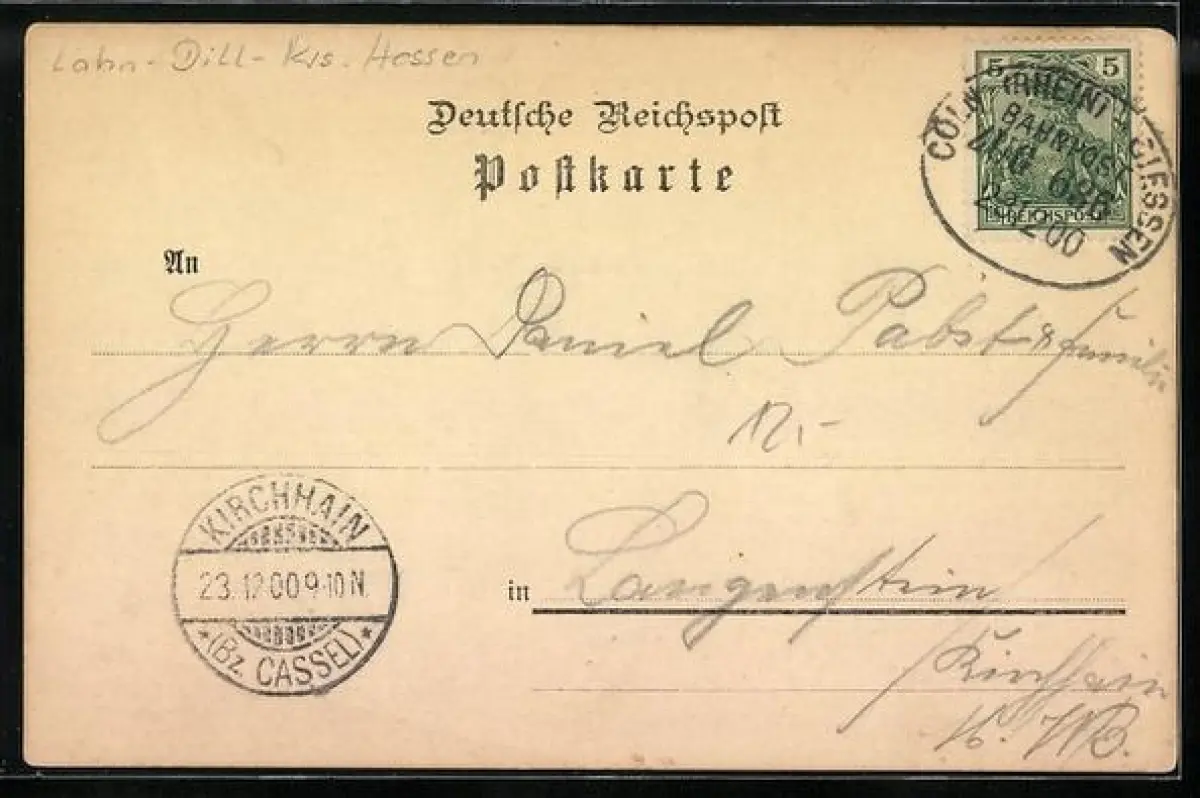 Lahn-Dill-Krs. Hessen
5 5
REICHSPOST
CÖLN (RHEIN) GIESSEN
BAHNPOST
ZUG 686
23 12 00
Deutsche Reichspost
Postkarte
An
Herrn Daniel Pabst & Familie
12.-
KIRCHHAIN
23.12.00 9-10 N.
* (Bz. CASSEL) *
in Langenstein
Kirchhain